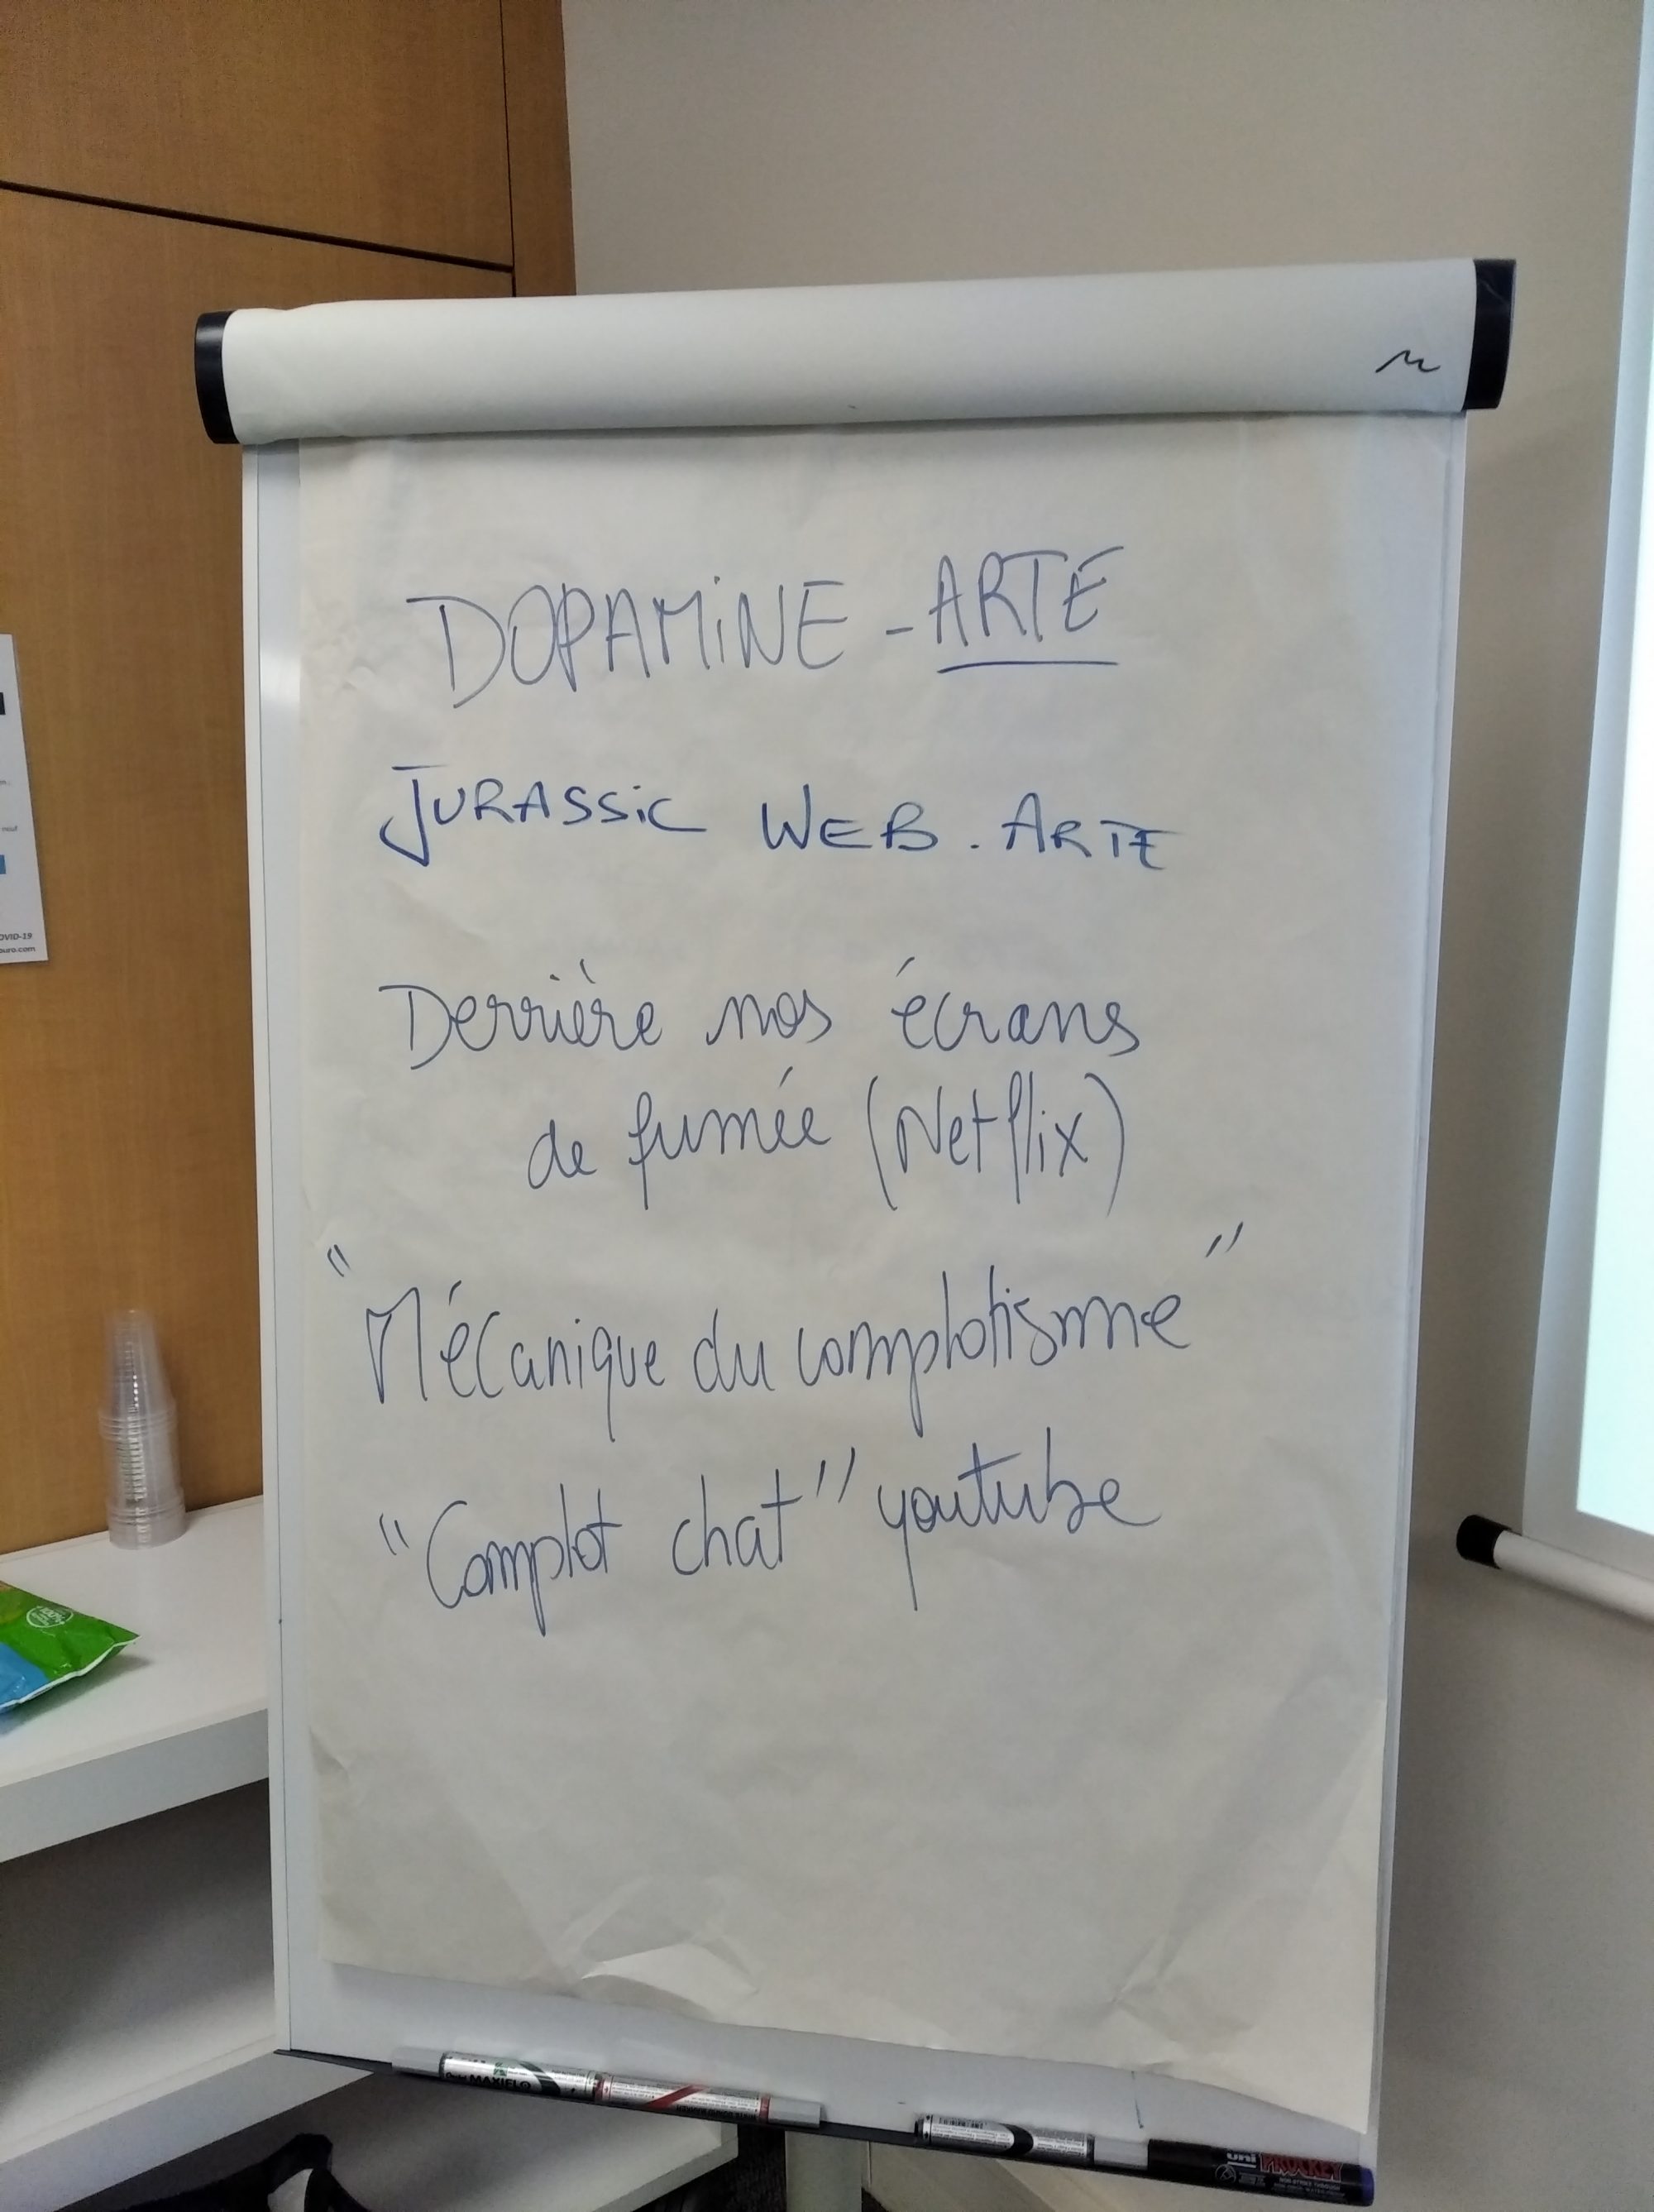 DOPAMiNE - ARTE
JURASSiC WEB. ARTE
Derrière nos écrans
de fumée (Netflix)
"Mécanique du complotisme"
"Complot chat" youtube
OVID-19
MAXIFLO
uni PROCKEY